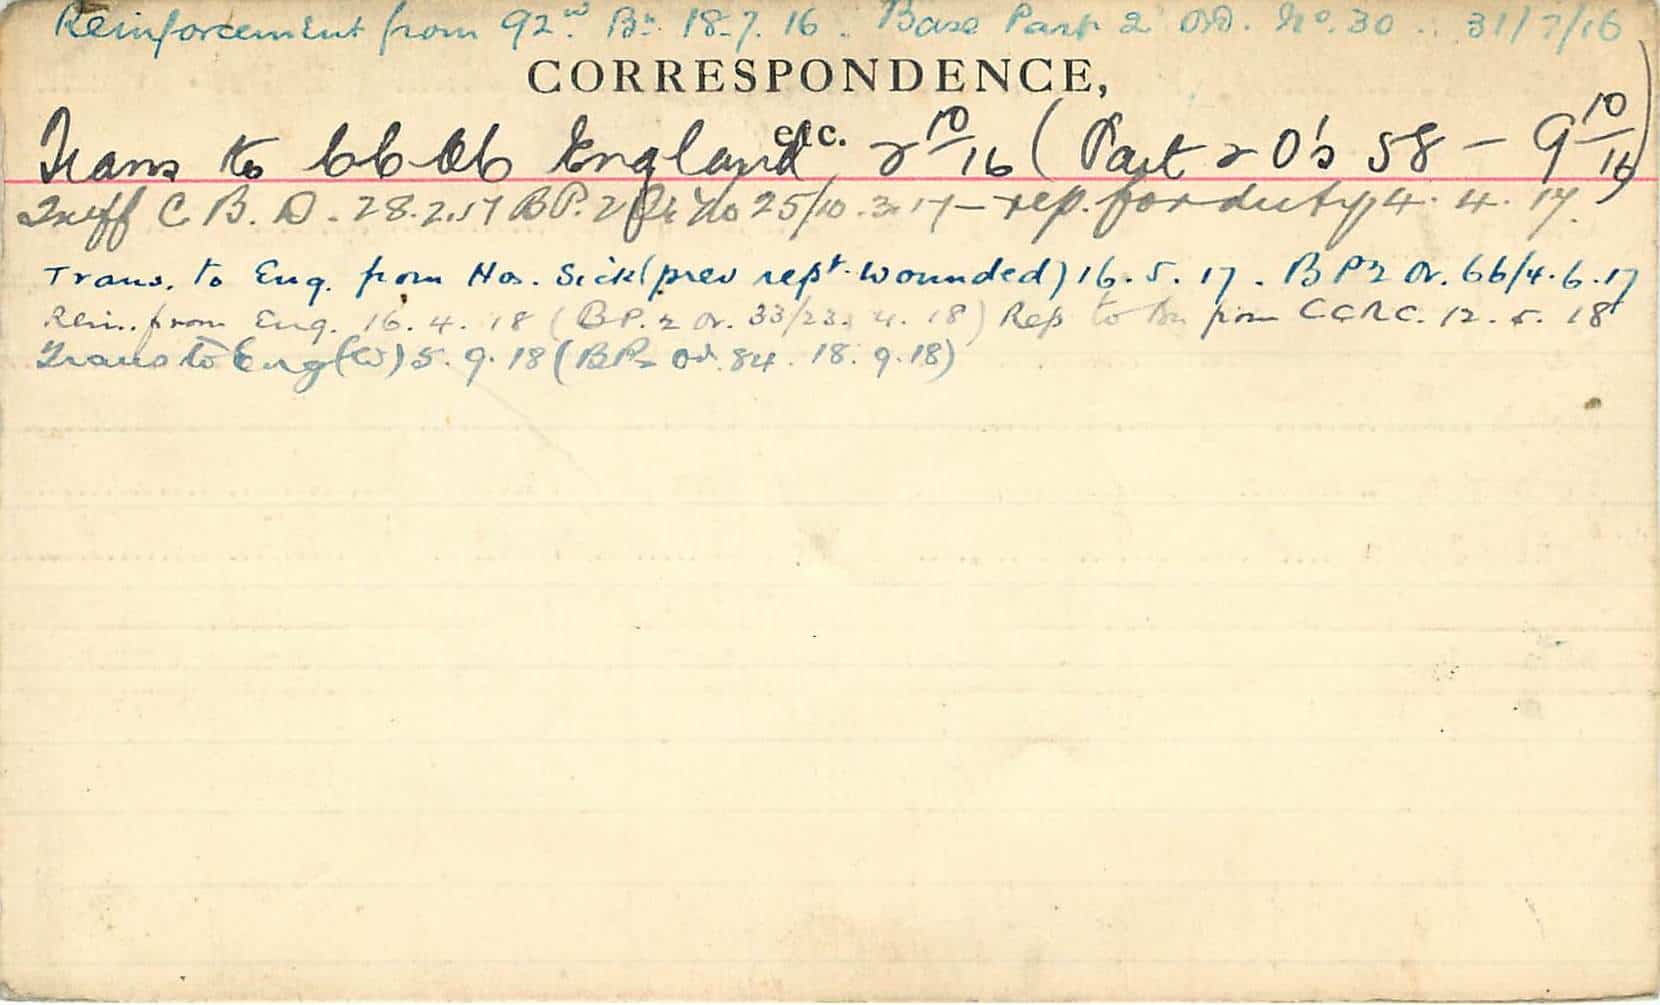 Reinforcement from 92nd Bn. 18.7.16. Base Part 2 OD. No. 30 .. 31/7/16
CORRESPONDENCE,
etc.
Trans to England 2 10/16 (Part 2 O's 58 - 9 10/16)
C.B.D. 28.2.17 BP. 2 No 25/10.3.17 - rep. for duty 4.4.17.
Trans. to Eng. from Hos. Sick (prev rept. wounded) 16.5.17. BP2 Or. 66/4.6.17
Rein. from Eng. 16.4.18 (BP.2 Or. 33/23.4.18) Rep to Bn from CCRC. 12.5.18
Trans to Eng (W) 5.9.18 (BP2 Od. 84. 18.9.18)